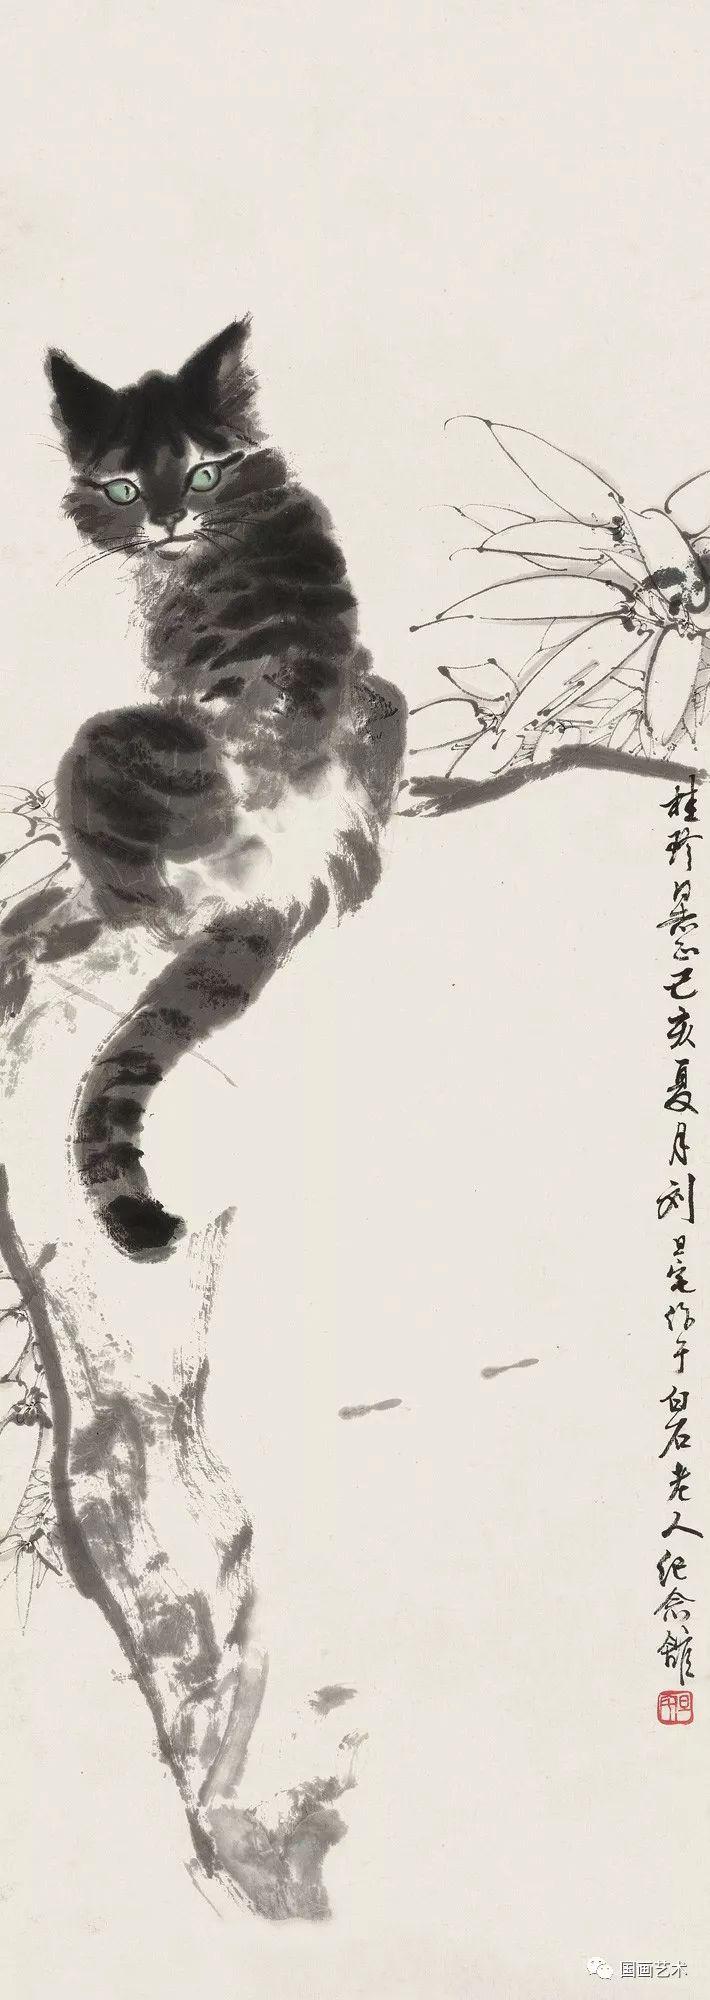 桂珍同志正己亥夏月刘旦宅作于白石老人纪念馆
旦宅
国画艺术